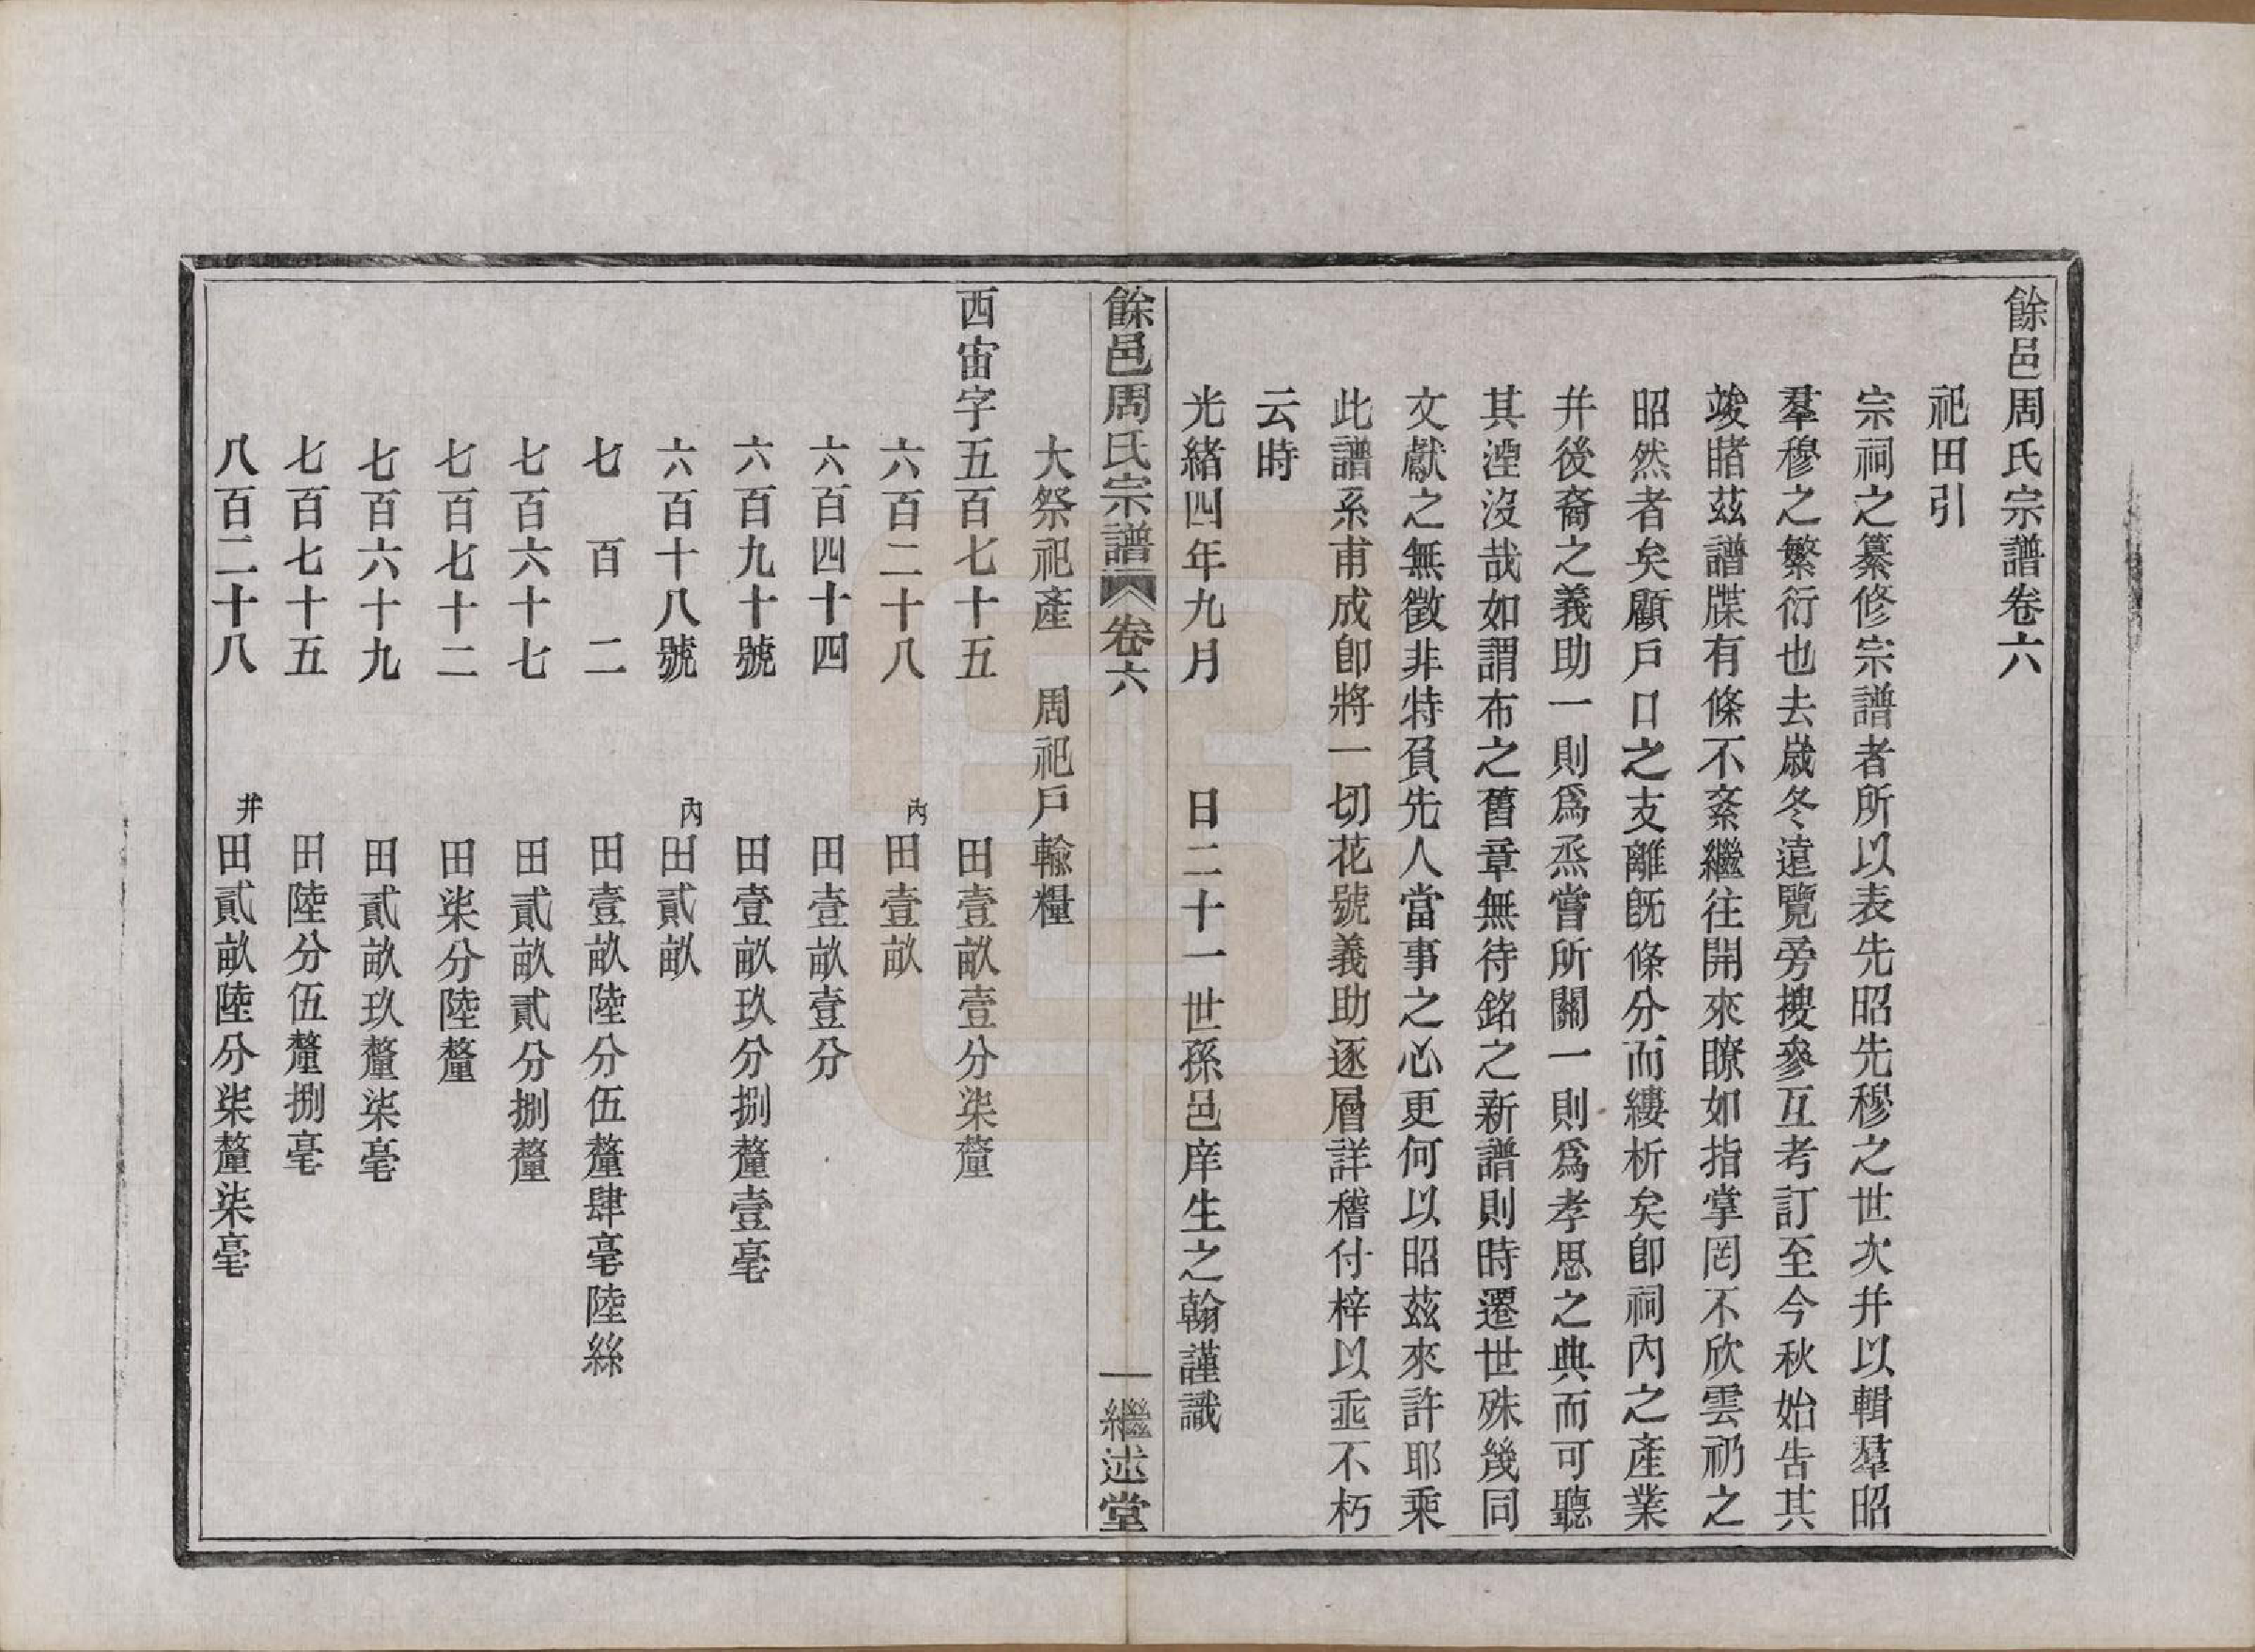 餘邑周氏宗譜卷六
祀田引
宗祠之纂修宗譜者所以表先昭先穆之世次并以輯羣昭
羣穆之繁衍也去歲冬遠覽旁搜參互考訂至今秋始告其
竣睹茲譜牒有條不紊繼往開來瞭如指掌罔不欣雲礽之
昭然者矣顧戶口之支離旣條分而縷析矣卽祠內之產業
并後裔之義助一則爲烝嘗所關一則爲孝思之典而可聽
其湮沒哉如謂布之舊章無待銘之新譜則時遷世殊幾同
文獻之無徵非特負先人當事之心更何以昭茲來許耶乘
此譜系甫成卽將一切花號義助逐層詳稽付梓以垂不朽
云時
光緒四年九月　　日二十一世孫邑庠生之翰謹識
餘邑周氏宗譜 卷六 一 繼述堂
大祭祀產　周祀戶輸糧
西宙字五百七十五　　田壹畝壹分柒釐
六百二十八　　內田壹畝
六百四十四　　田壹畝壹分
六百九十號　　田壹畝玖分捌釐壹毫
六百十八號　　內田貳畝
七百二　　田壹畝陸分伍釐肆毫陸絲
七百六十七　　田貳畝貳分捌釐
七百七十二　　田柒分陸釐
七百六十九　　田貳畝玖釐柒毫
七百七十五　　田陸分伍釐捌毫
八百二十八　　并田貳畝陸分柒釐柒毫